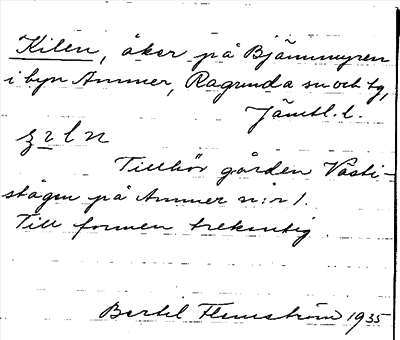 Kilen, åker på Bjämmyren
i byn Ammer, Ragunda sn och tg,
Jämtl. l.
Tillhör gården Västi-
stågen på Ammer n:r 1.
Till formen trekantig.
Bertil Flemström 1935